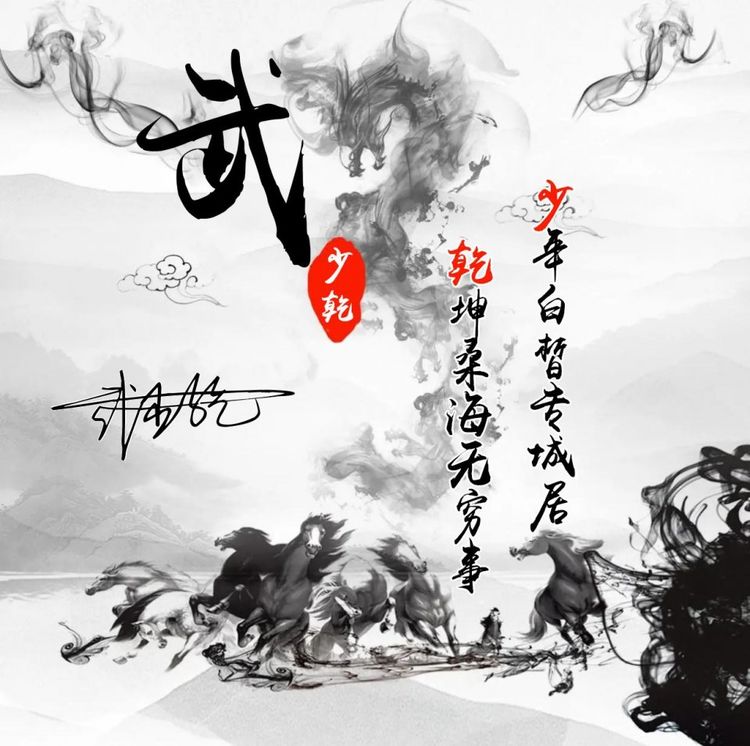 武
少乾
少年白皙专城居
乾坤桑海无穷事
武少乾